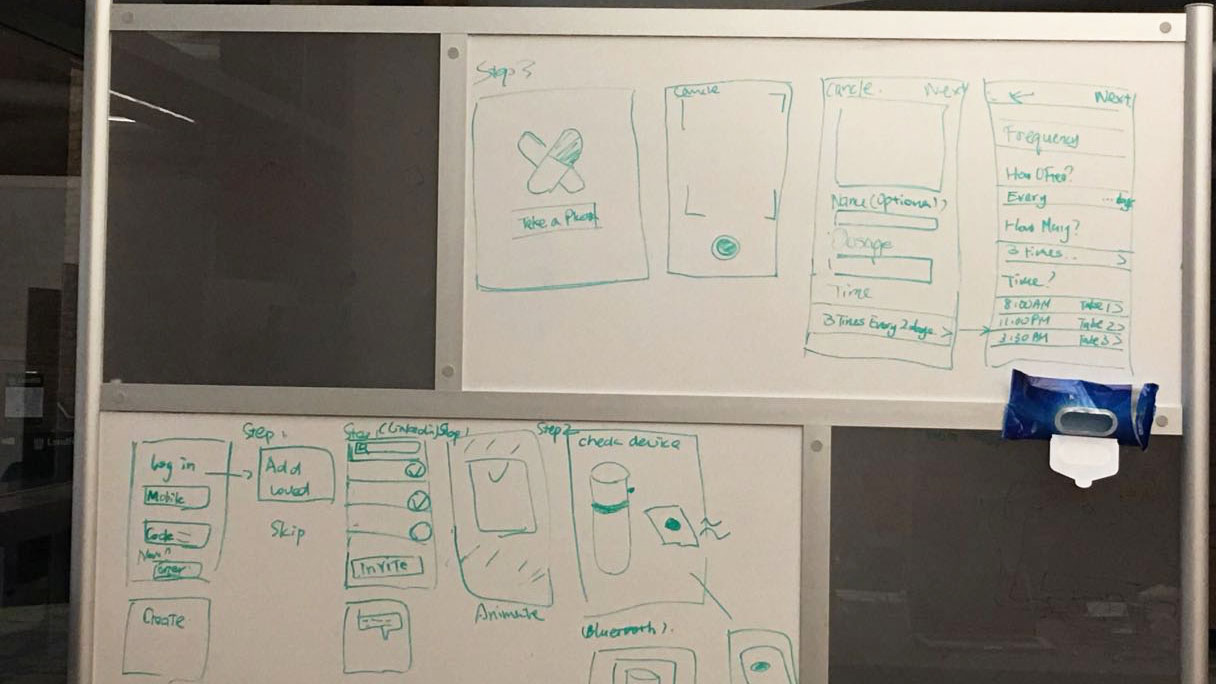 Step 3
Take a Photo
Cancle
Cancle.
Next
Name (Optional)
Dosage
Time
3 Times Every 2 days >
Next
Frequency
How Often?
Every ... days
How Many?
3 times.. >
Time?
8:00 AM Take 1 >
11:00 PM Take 2 >
3:30 PM Take 3 >
Step 1
Log in
Mobile
Code
Create
Add
Loved
Skip
Step 1
(LinkedIn)
Invite
Step 1
Animate
Step 2
check device
(Bluetooth).